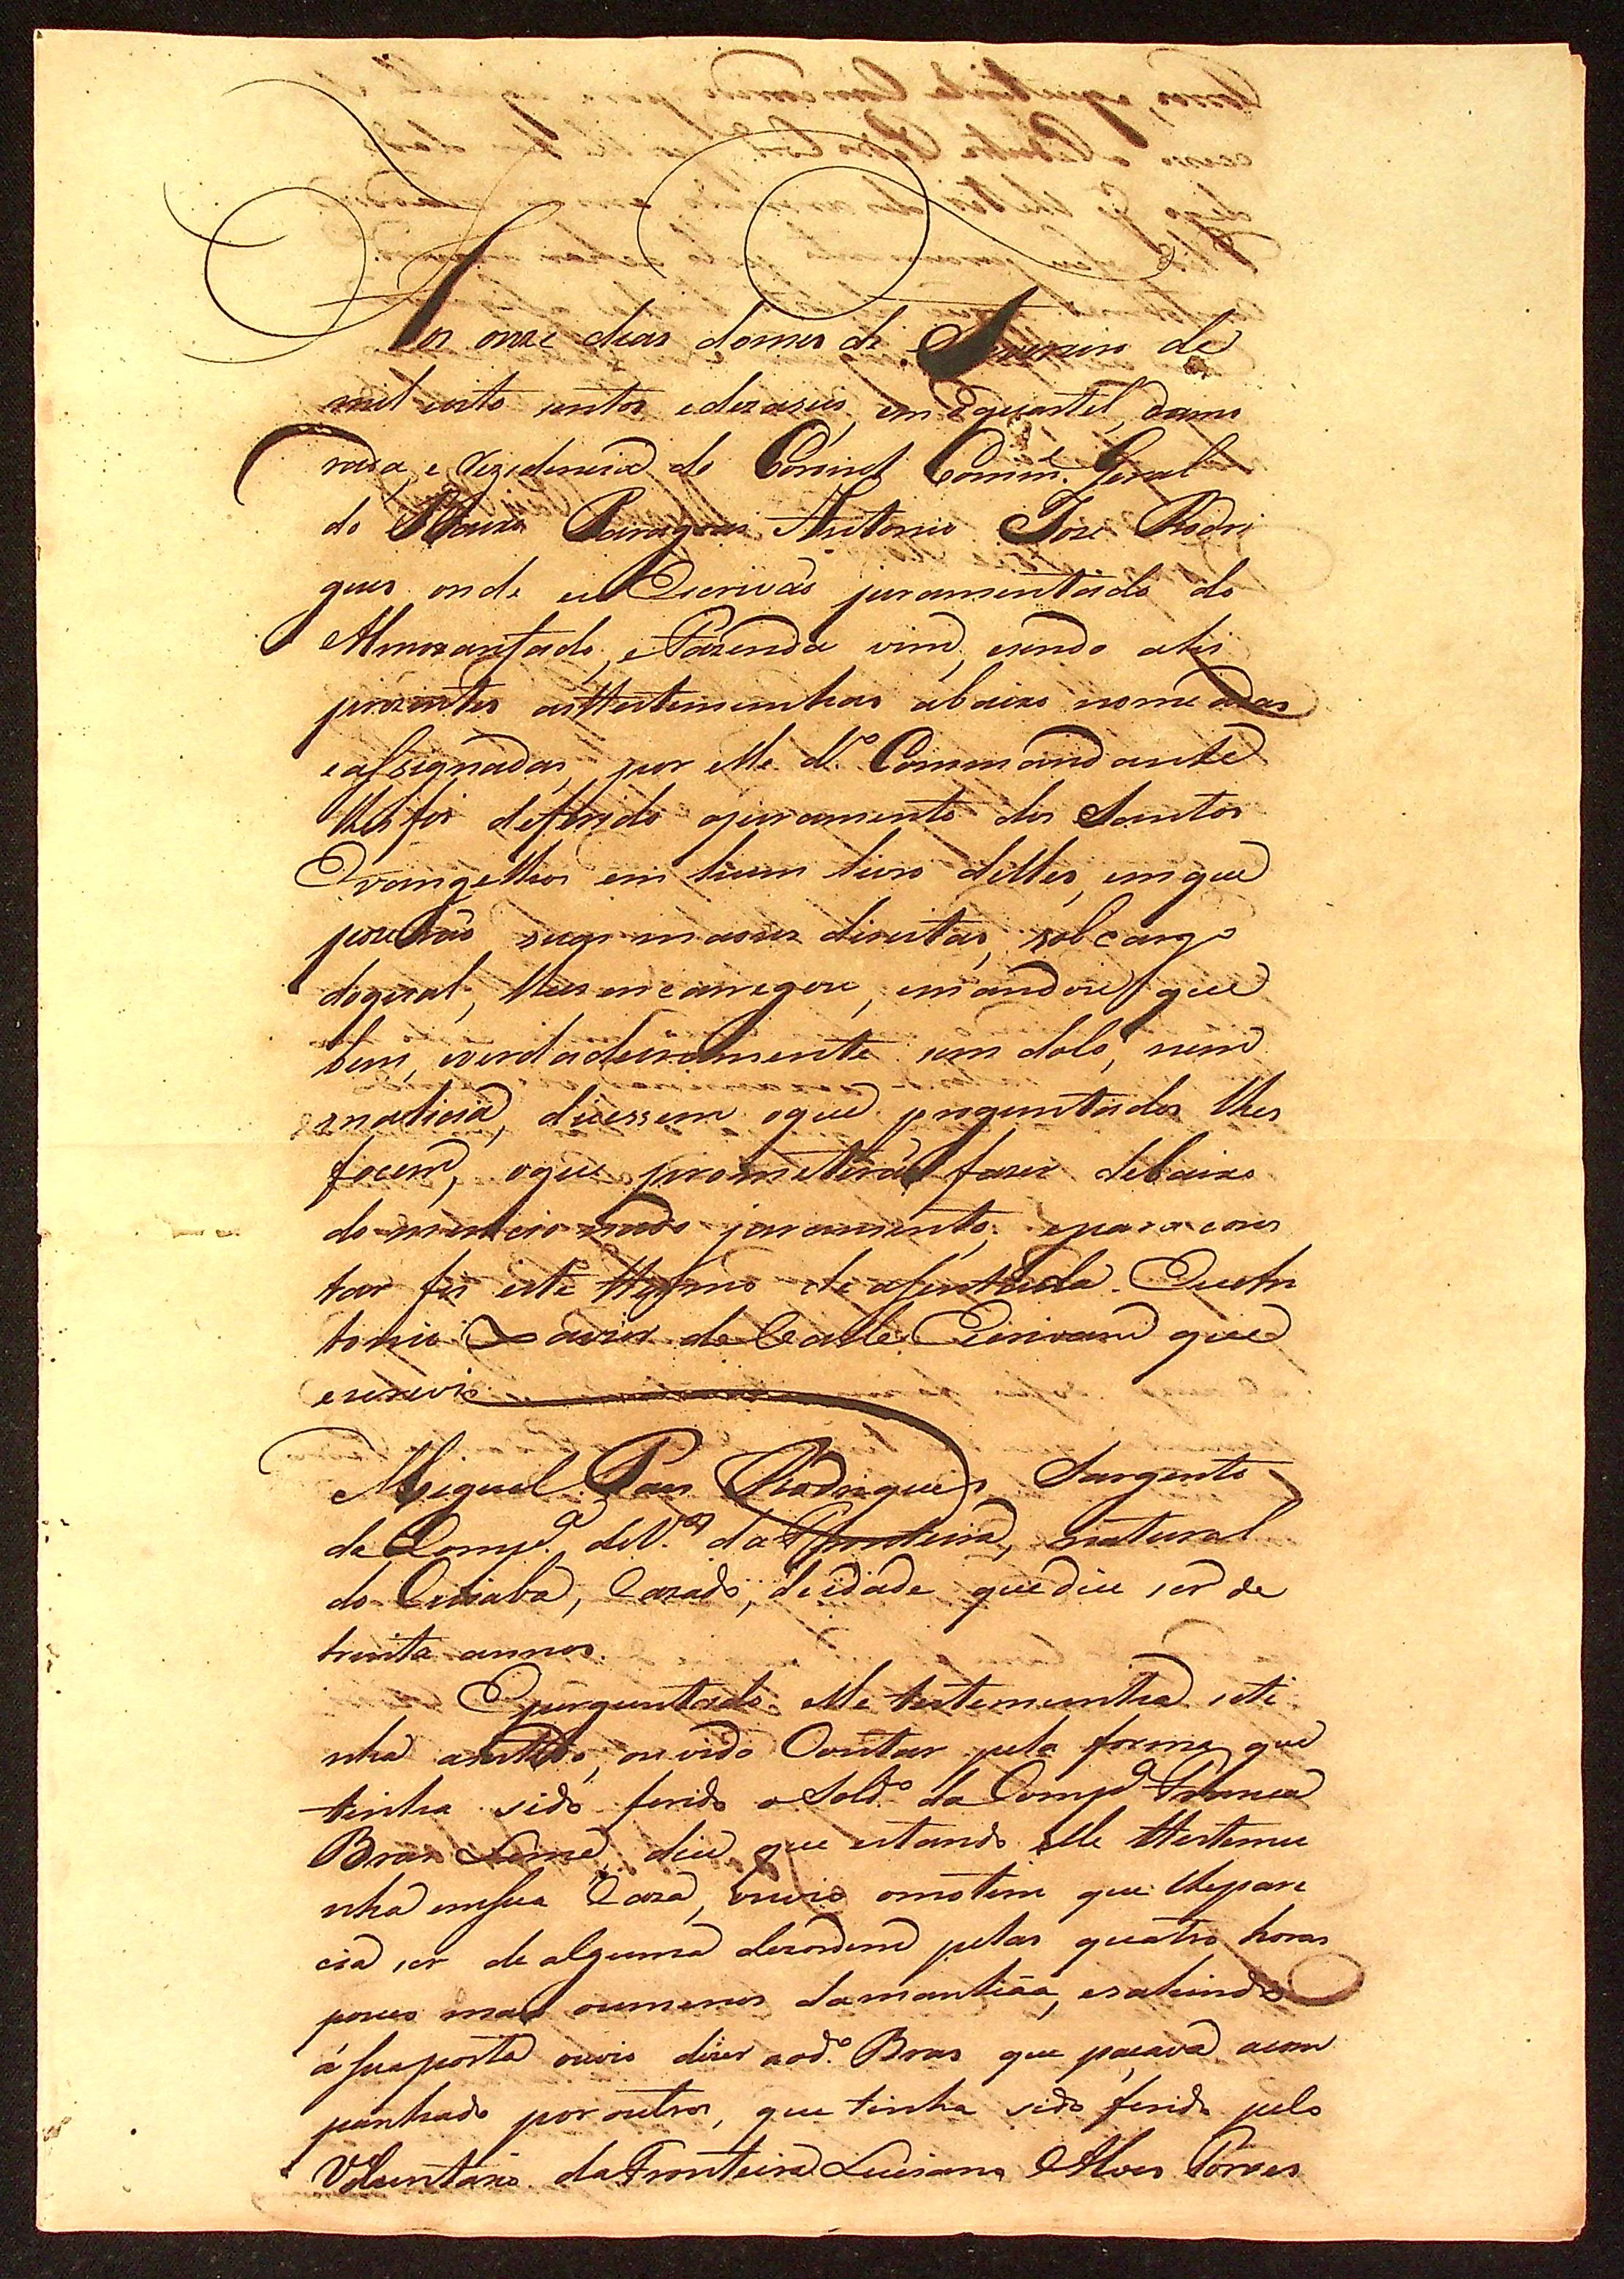 Aos onze dias domes de Fevereiro de
mil oito centos edezaseis, em Oquartel, damo
rada, e rezidencia do Coronel Comm.e Geral
do Baixo Paraguai Antonio Joze Rodri
gues onde eu Escrivaõ juramentado do
Almoxarifado, e Fazenda vim, esendo ahi
prezentes asttestemunhas abaixo nomeadas
eassignadas, por elle d.º Commandante
lhes foi deferido ojuramento dos Santos
Evangelhos em hum livro delles, emque
puzeraõ suas maons direitas, sob cargo
doqual, lhes encarregou, emandou que
bem, everdadeiramente sem dolo, nem
malicia, dicessem oque preguntados lhes
focem, oque prometeraõ fazer debaixo
do mencionado juramento, epara cons
tar fiz este ttermo de assentada. Eu An
tonio Xavier do Valle Escrivam que
escrevi
Miguel Paes Rodrigues, Sargento
da Comp.ª de V.os da Fronteira, natural
do Cuiabá, Cazado, deidade que dice ser de
trinta annos.
Eperguntado elle testemunha seti
nha ouvido Contar pela forma que
tinha sido ferido o Sold.º da Comp.ª Franca
Bras Leme, dice que estando elle ttestemu
nha emsua Caza, ouvio omotim que lhepare
cia ser de alguma dezordem pelas quatro horas
pouco mais oumenos damanhãa, esahindo
á suaporta ouvio dizer aod.º Bras que paçava acom
panhado por outros, que tinha sido ferido pelo
Voluntario da Fronteira Luciano Alves Torres